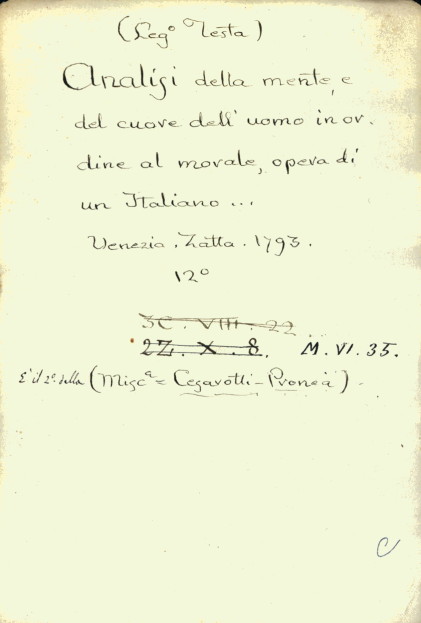 (Leg.º Testa)
Analisi della mente, e
del cuore dell' uomo in or.
dine al morale, opera di
un Italiano ...
Venezia. Zatta. 1793.
12º
3C. VIII. 22
2Z. X. 8. M. VI. 35.
È il 2º della (Miscª = Cesarotti - Pronea).
C